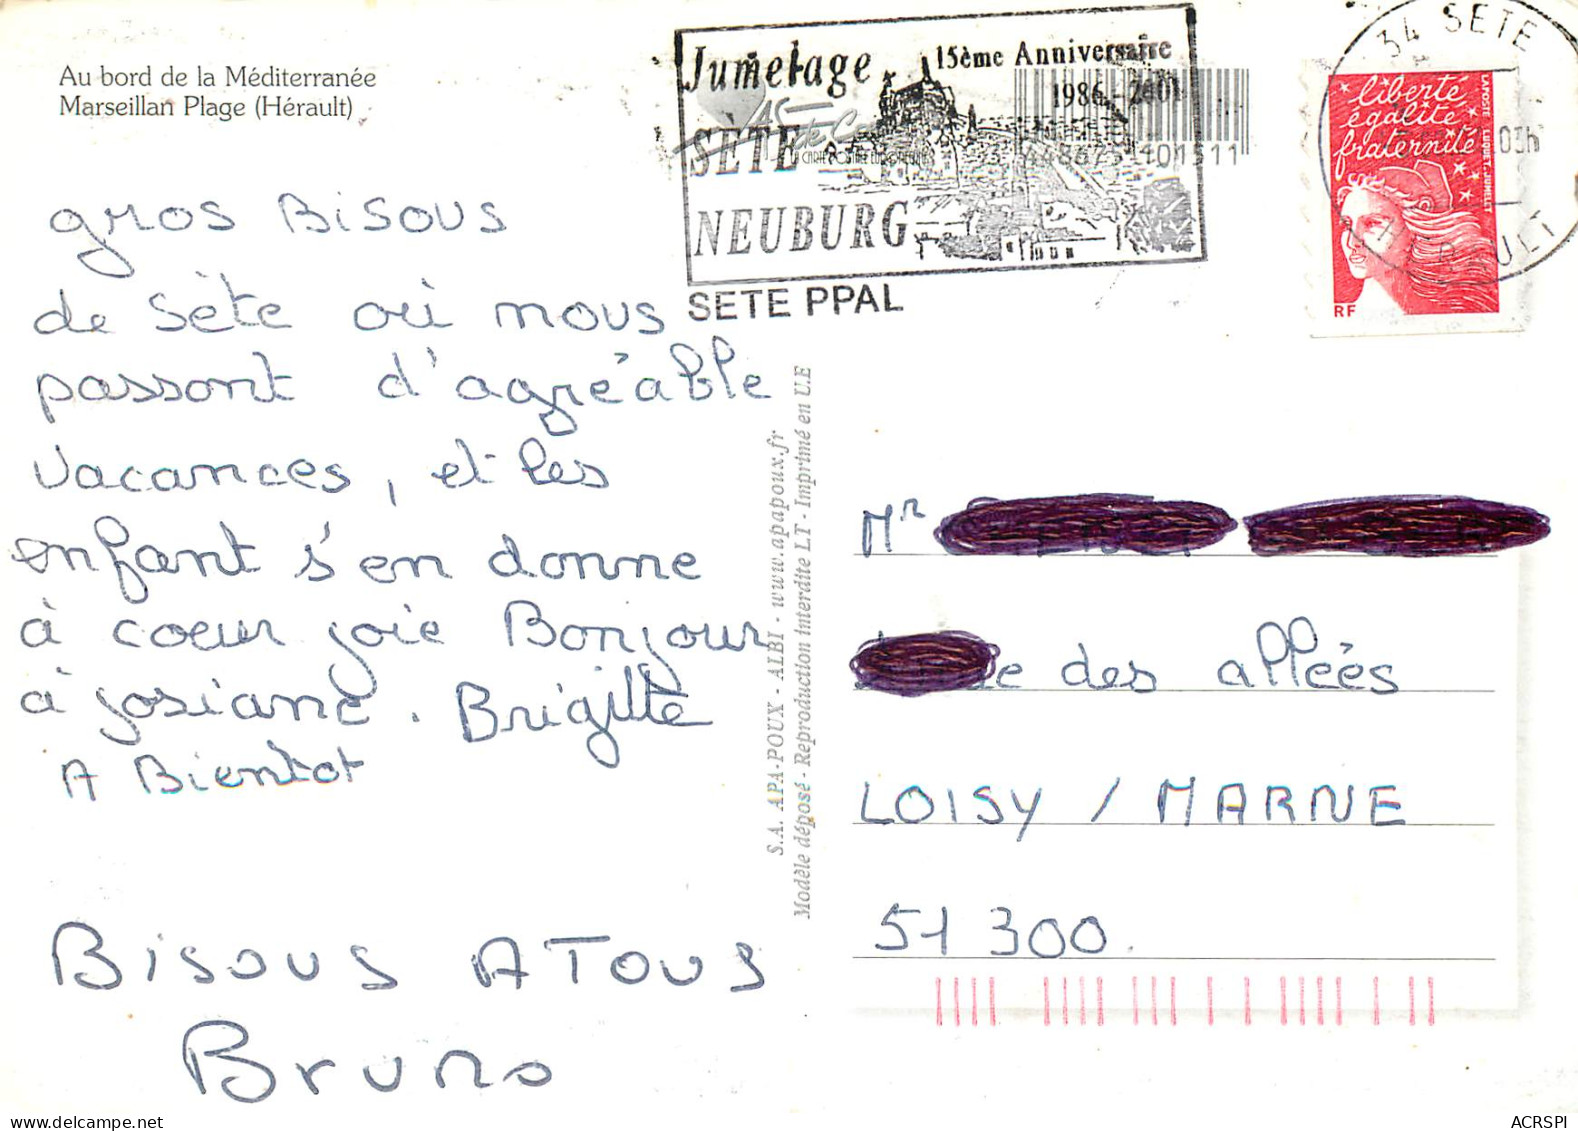 Au bord de la Méditerranée
Marseillan Plage (Hérault)
gros Bisous
de Sète où nous
passont d'agréable
vacances, et les
enfant s'en donne
à coeur joie Bonjour
à josiane. Brigitte
A Bientot
Bisous A Tous
Bruno
Jumelage 15ème Anniversaire
1986-2001
SÈTE
NEUBURG
SETE PPAL
LA CARTE POSTALE EUROPEENNE
101511
34 SETE
HERAULT
liberté
égalité
fraternité
LA POSTE LUQUET-JUMELET
RF
S.A. APA-POUX - ALBI - www.apapoux.fr
Modèle déposé - Reproduction interdite LT - Imprimé en U.E
Mr
des alleés
LOISY / MARNE
51 300.
ACRSPI